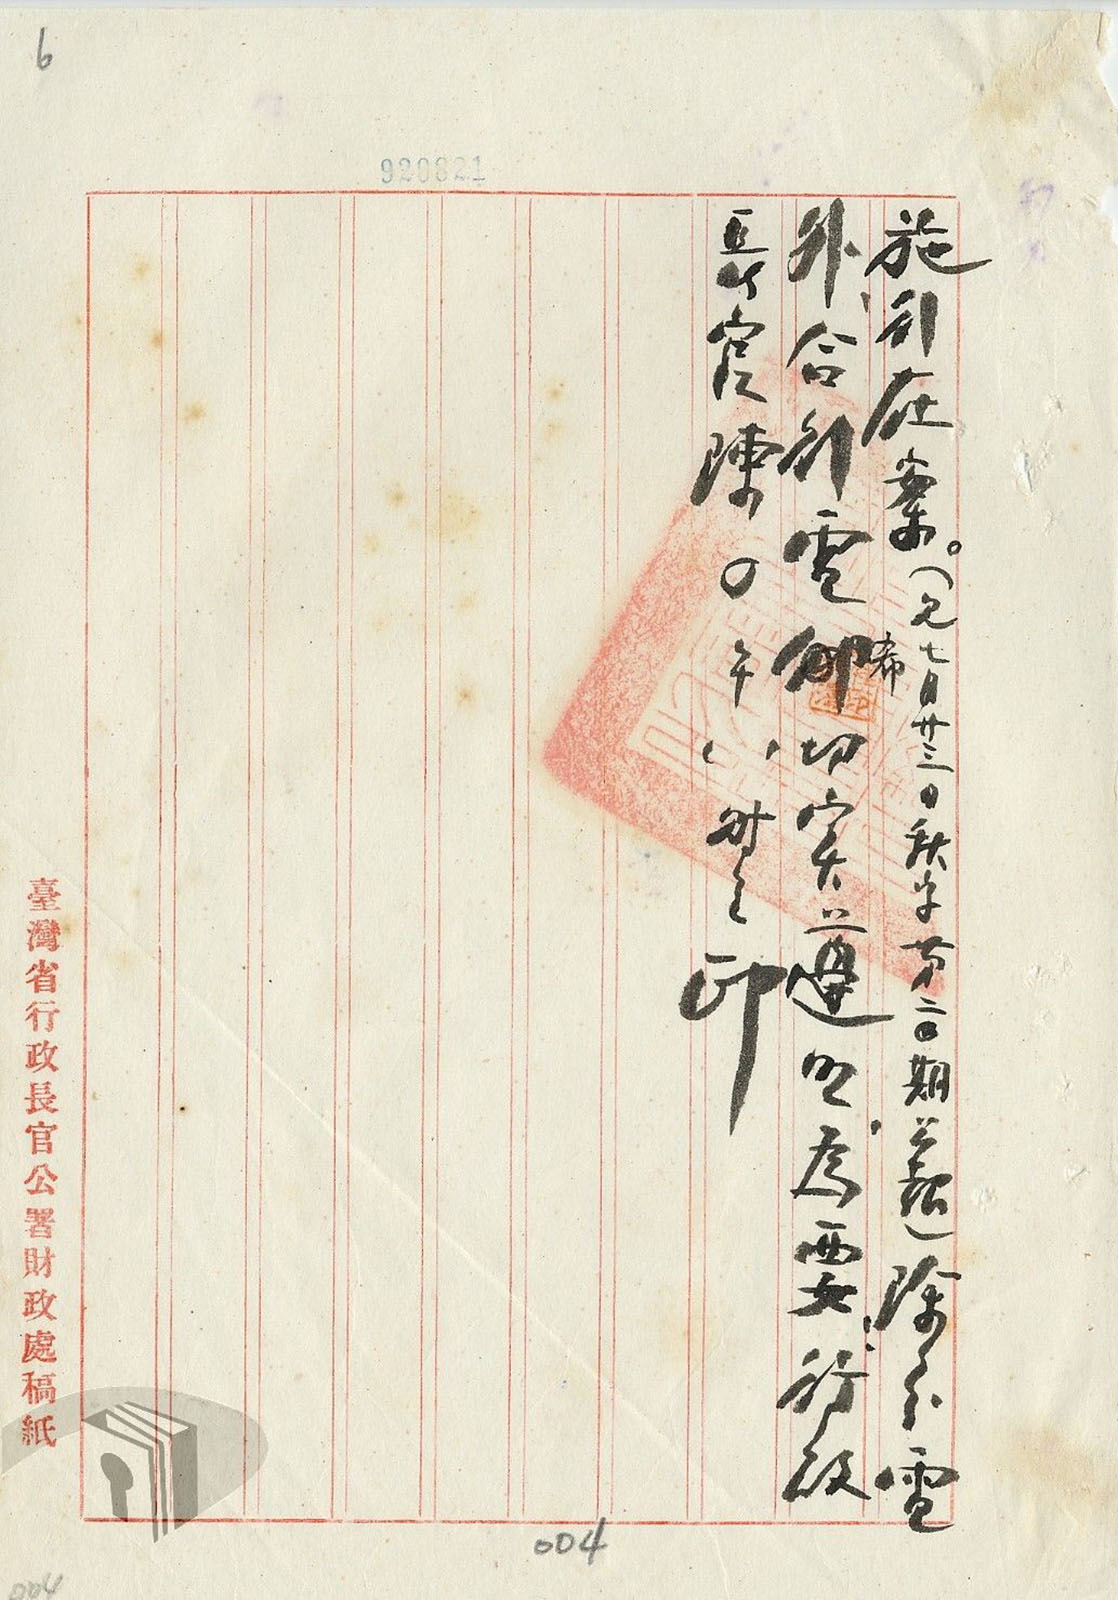 6
920821
施行在案。(見七月廿三日秋字第二0期公報)除分電
外合行電希卽切实遵照為要行政
長官陳0午 財三印
臺灣省行政長官公署財政處稿紙
004
004